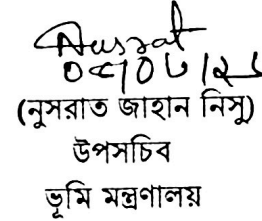 Nusrat
(নুসরাত জাহান নিসু)
উপসচিব
ভূমি মন্ত্রণালয়